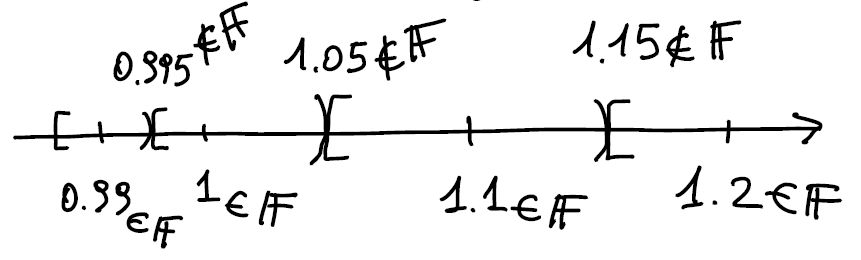 0.995∉𝔽 1.05∉𝔽 1.15∉𝔽
0.99∈𝔽 1∈𝔽 1.1∈𝔽 1.2∈𝔽